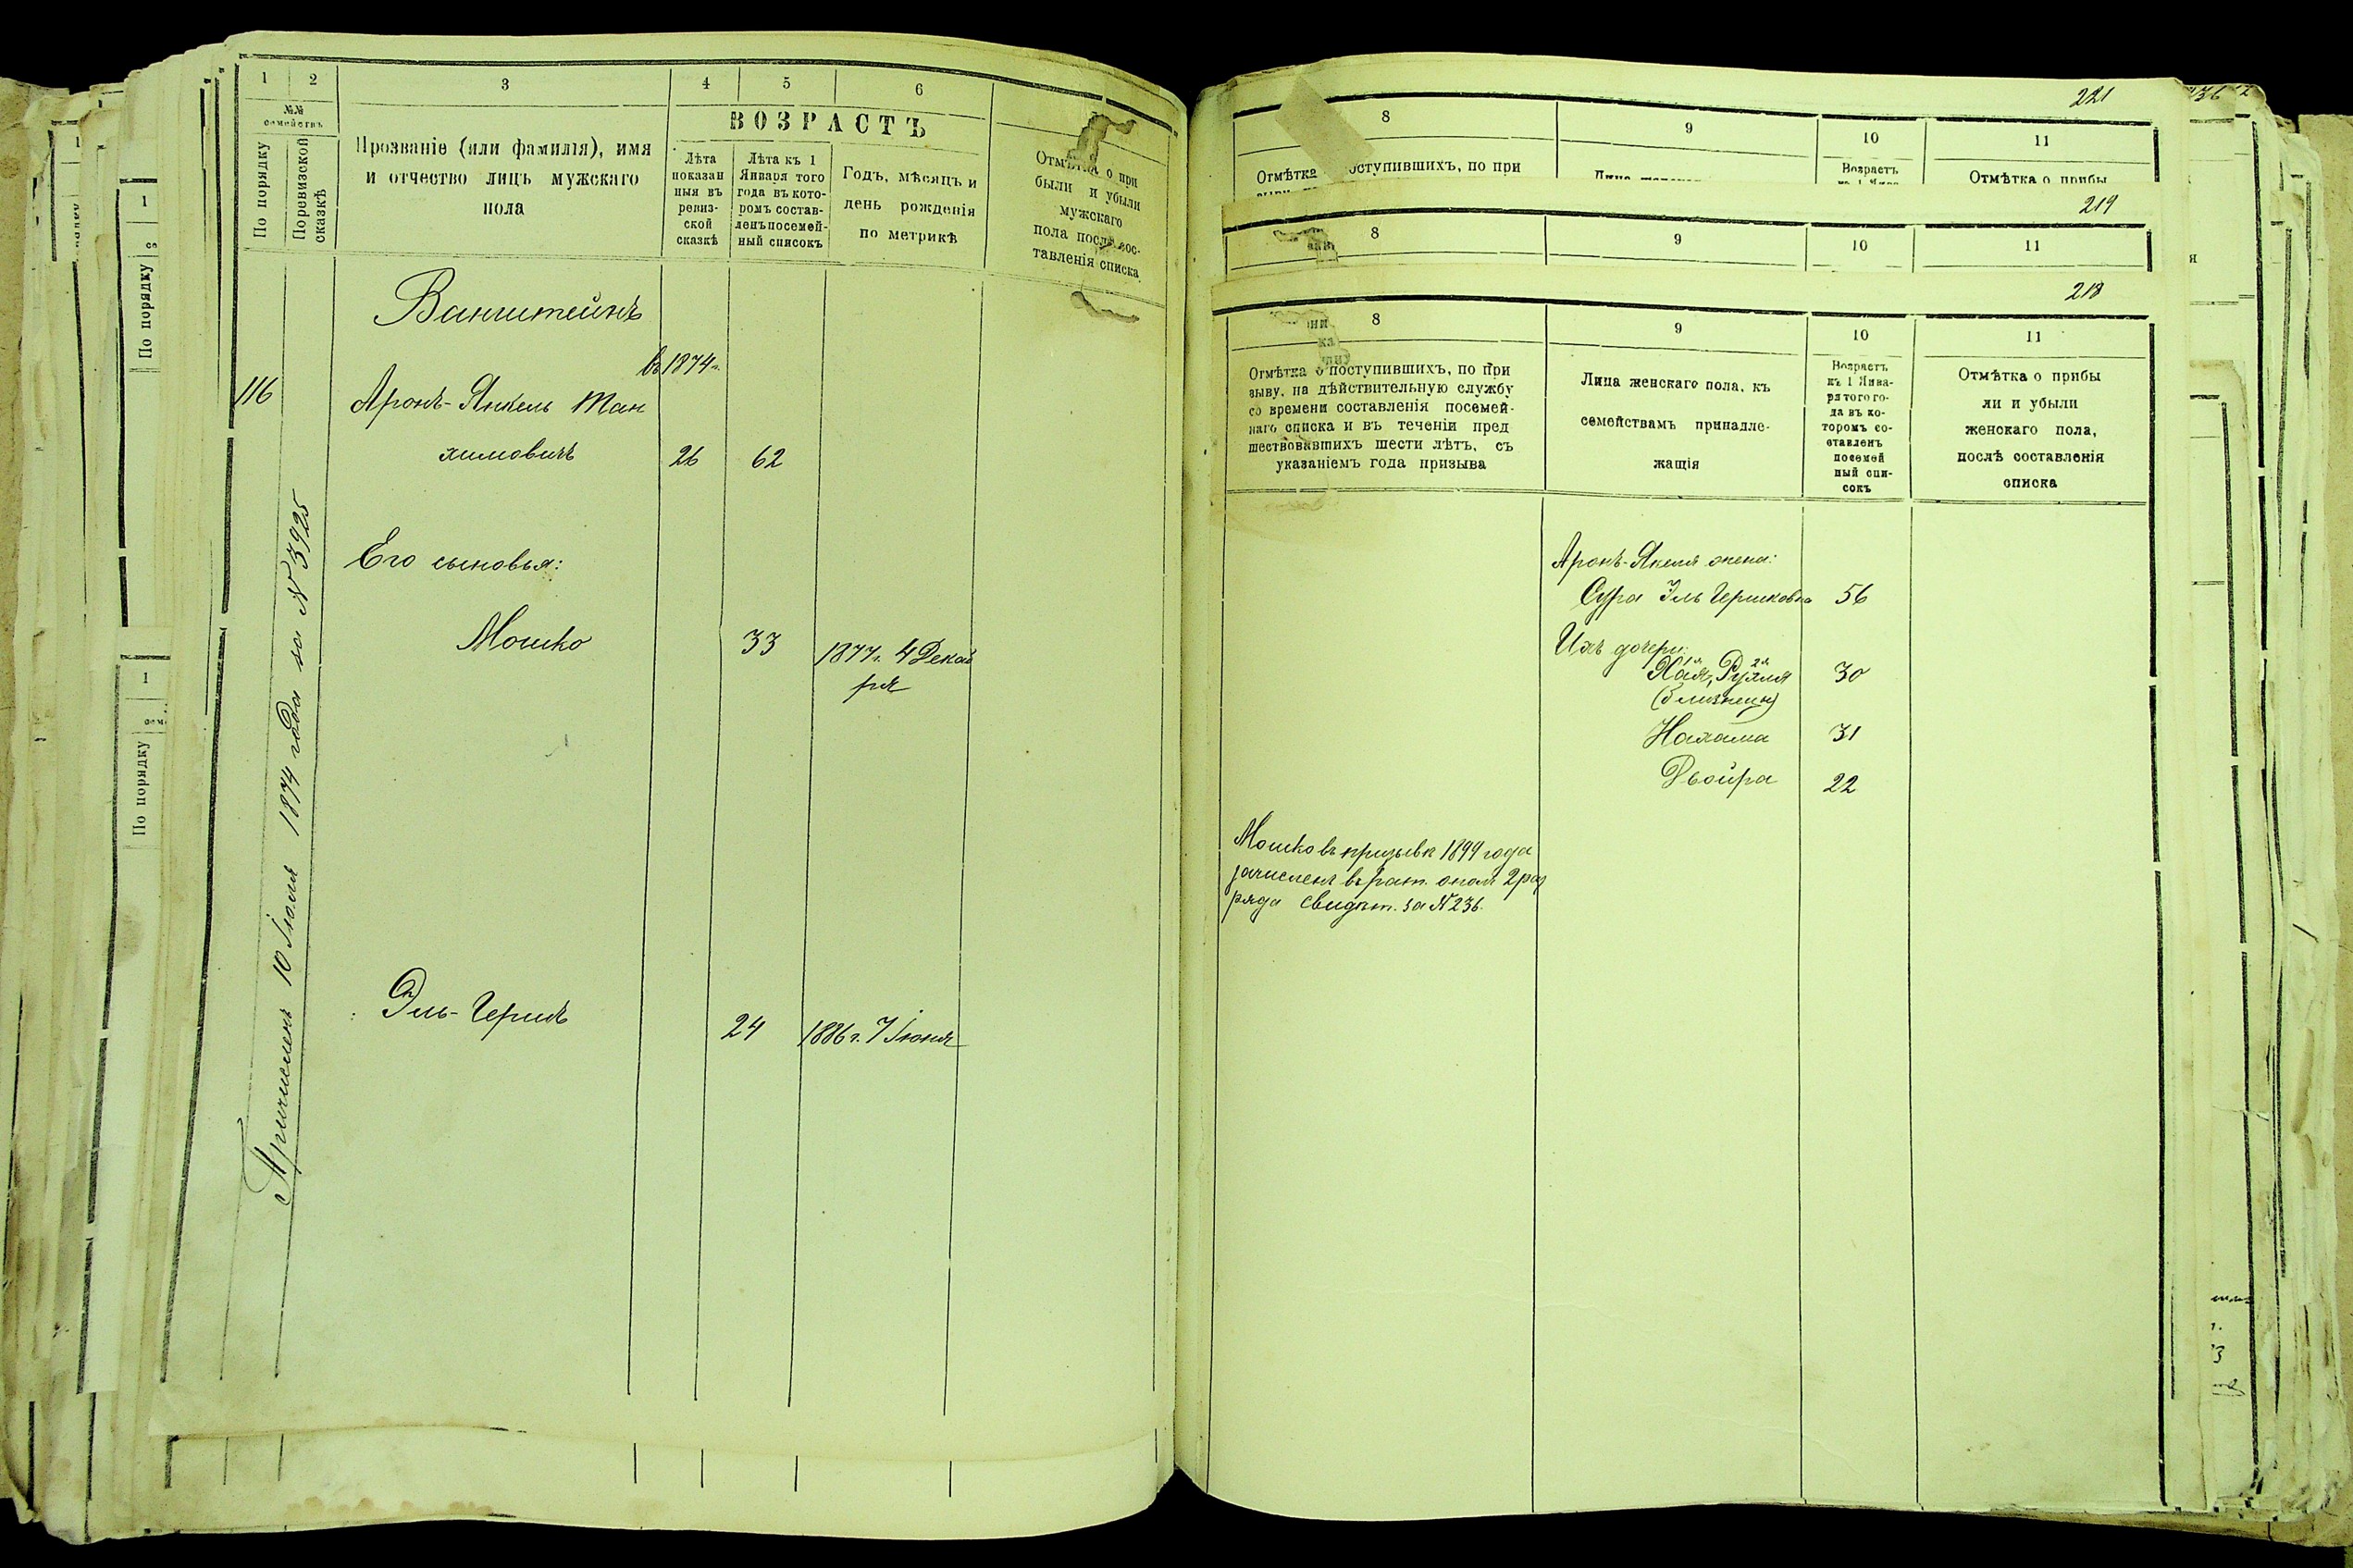 1 2 3 4 5 6
№№ семействъ
По порядку
По ревизской сказкѣ
Прозваніе (или фамилія), имя
и отчество лицъ мужскаго
пола
ВОЗРАСТЪ
Лѣта
показан
ныя въ
ревиз-
ской
сказкѣ
Лѣта къ 1
Января того
года въ кото-
ромъ состав-
ленъ посемей-
ный списокъ
Годъ, мѣсяцъ и
день рожденія
по метрикѣ
Отмѣтка о при
были и убыли
мужскаго
пола послѣ сос-
тавленія списка
Ванштейнъ
въ 1874 г.
116
Аронъ-Янкель Тан
химовичъ 26 62
Его сыновья:
Мошко 33 1877 г. 4 Декаб
ря
Эль-Гершъ 24 1886 г. 7 Іюня
Причисленъ 10 Іюля 1874 года за № 3925
По порядку
1
По порядку
221
8 9 10 11
Отмѣтка поступившихъ, по при
Возрастъ
Отмѣтка о прибы
219
8 9 10 11
218
8 9 10 11
Отмѣтка о поступившихъ, по при
зыву, на дѣйствительную службу
со времени составленія посемей-
наго списка и въ теченіи пред
шествовавшихъ шести лѣтъ, съ
указаніемъ года призыва
Лица женскаго пола, къ
семействамъ принадле-
жащія
Возрастъ
къ 1 Янва-
ря того го-
да въ ко-
торомъ со-
ставленъ
посемей
ный спи-
сокъ
Отмѣтка о прибы
ли и убыли
женскаго пола,
послѣ составленія
списка
Аронъ-Янкеля жена:
Сура Эль Гершковна 56
Ихъ дочери:
1я Хая, 2я Рухля 30
(близнецы)
Нахама 31
Двойра 22
Мошко въ призывѣ 1899 года
зачисленъ въ рат. опол. 2 раз
ряда свидѣт. за № 236.